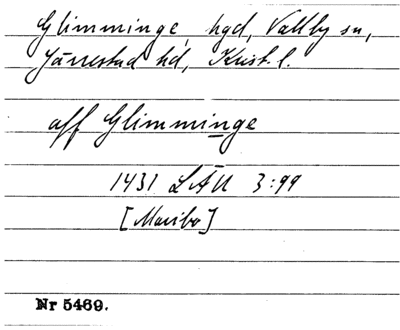 Glimminge, hgd, Vallby sn,
Järrestad hd, Krist. l.
aff Glimminge
1431 LÄU 3:99
[Maribo]
Nr 5469.